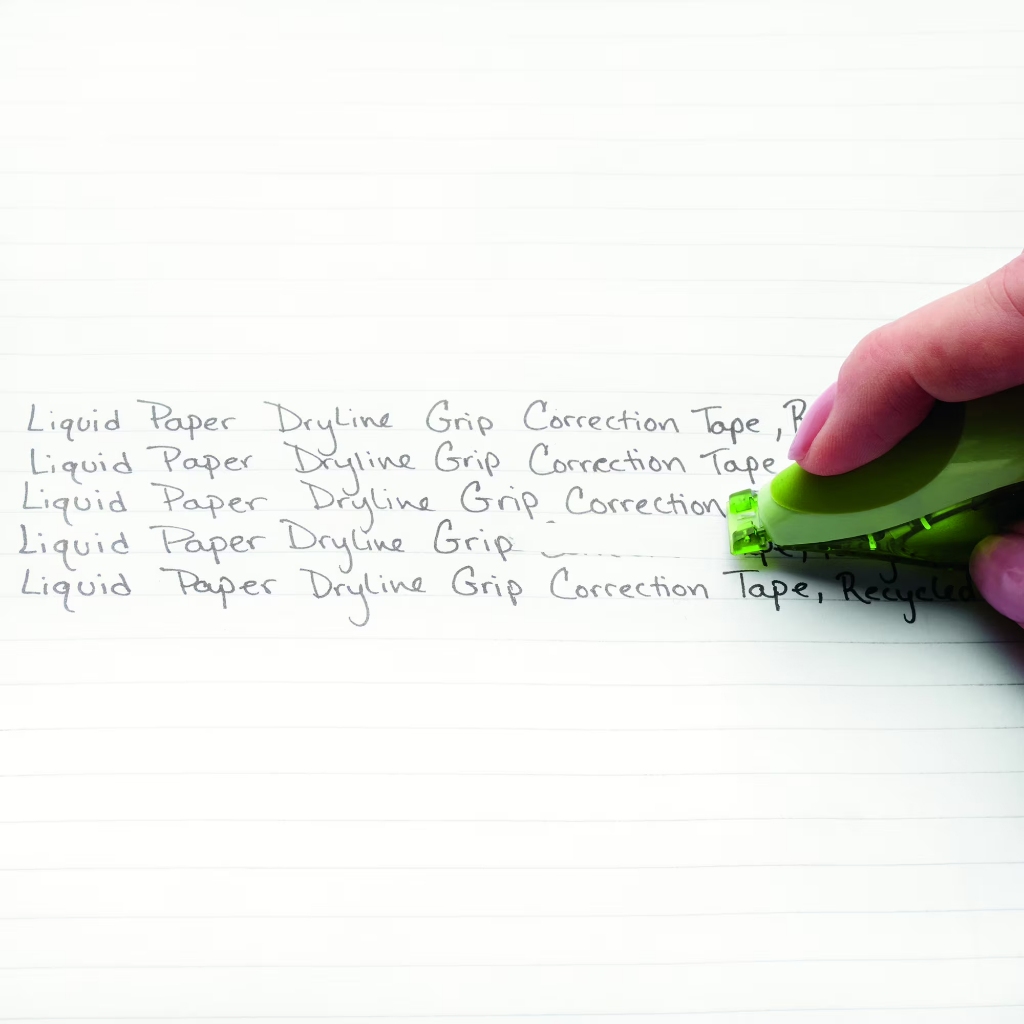 Liquid Paper DryLine Grip Correction Tape, R
Liquid Paper Dryline Grip Correction Tape
Liquid Paper Dryline Grip Correction
Liquid Paper Dryline Grip
Liquid Paper Dryline Grip Correction Tape, Recycled